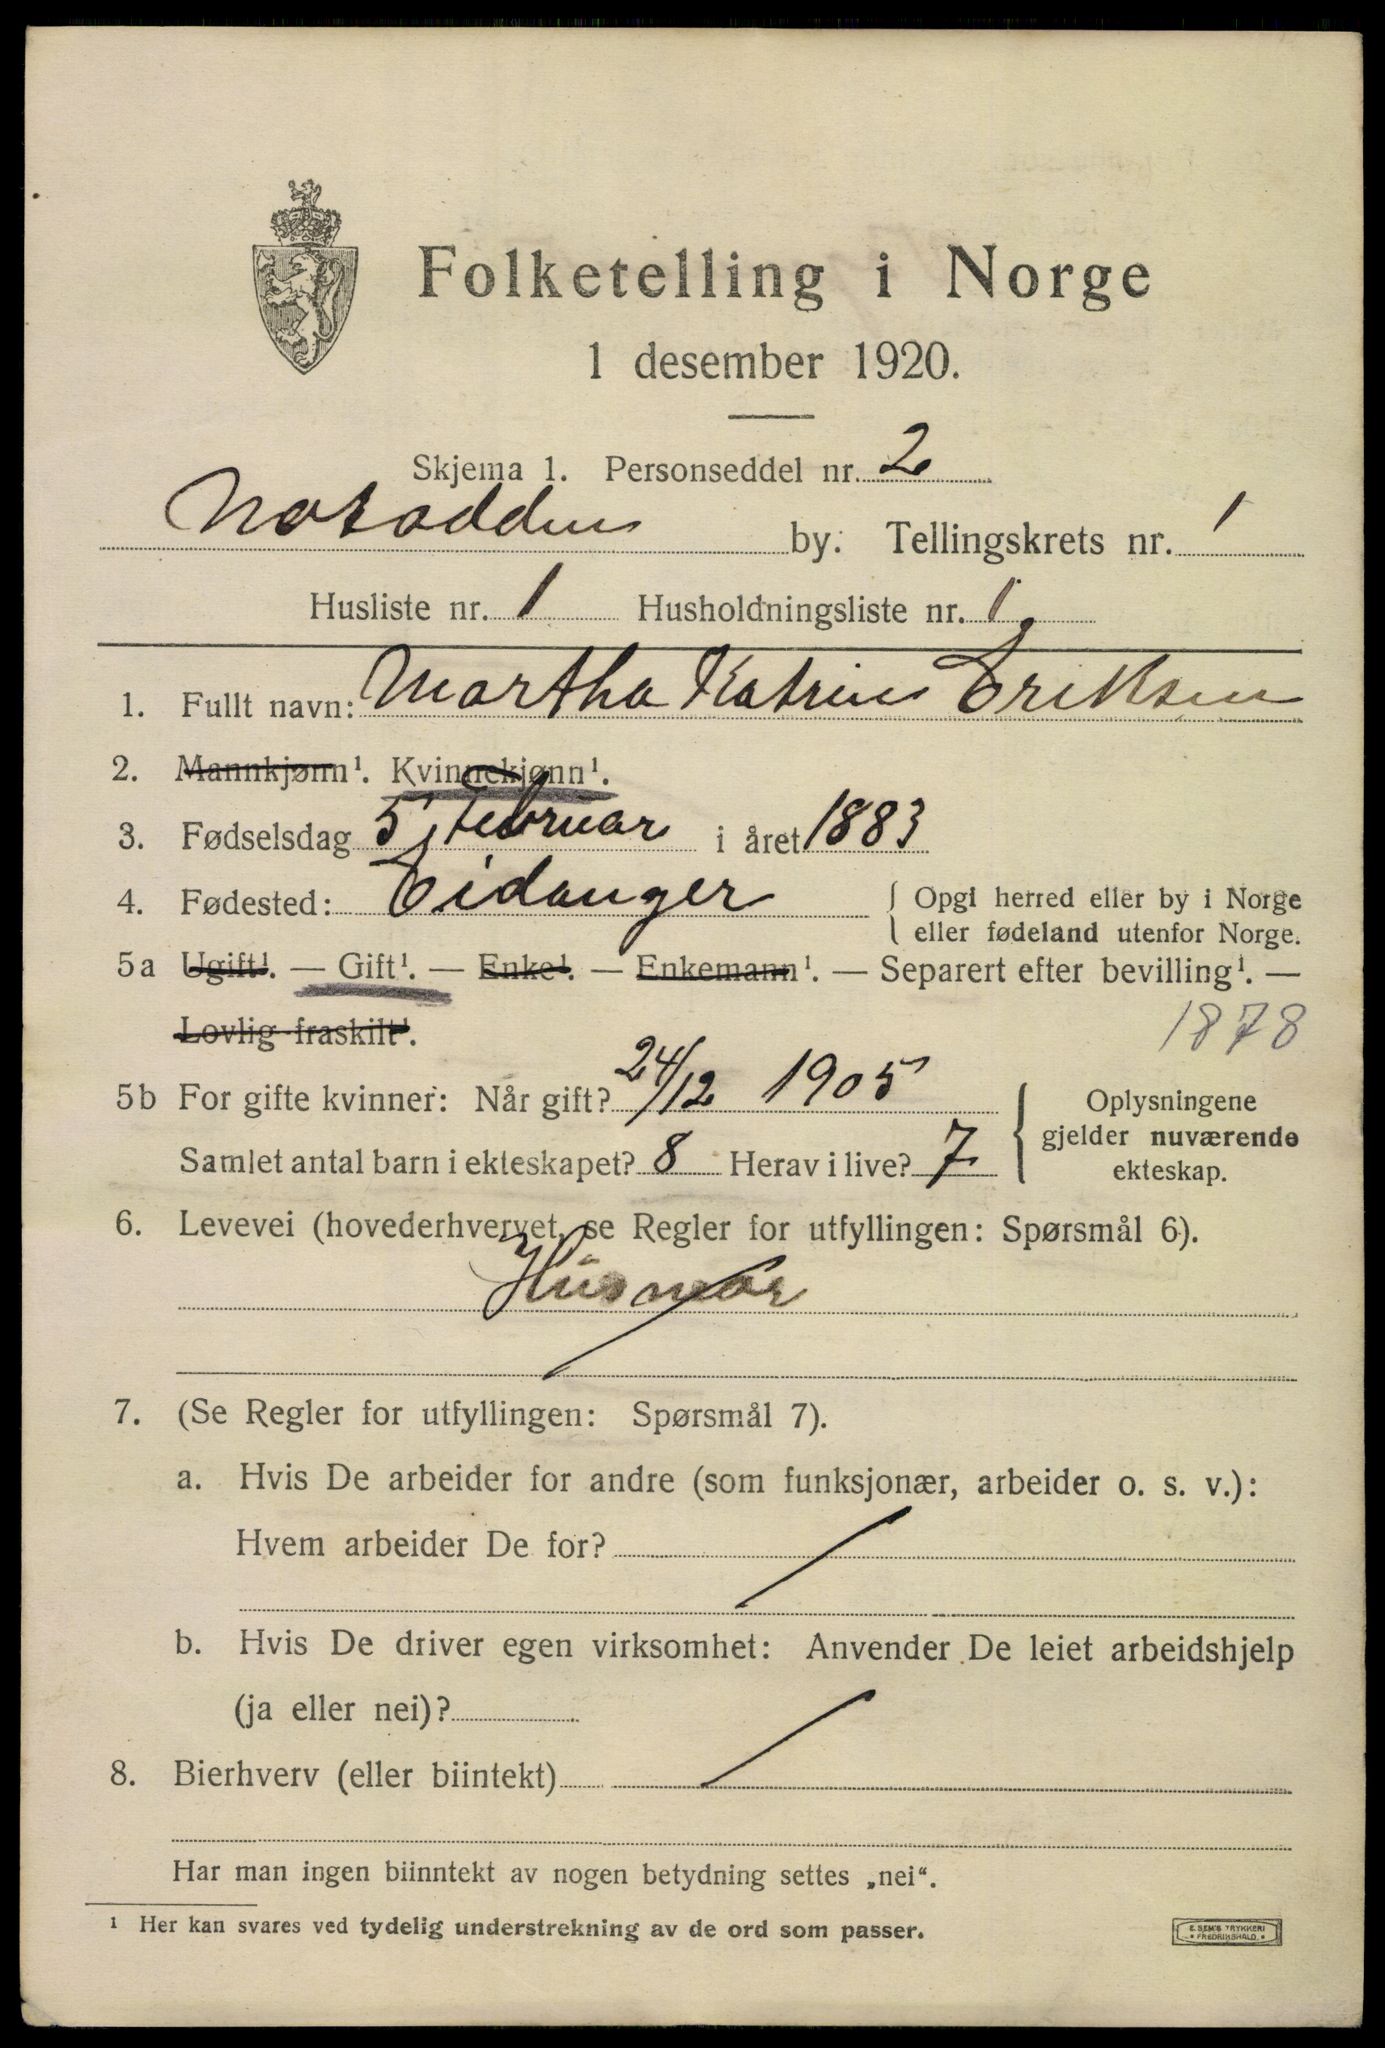 Folketelling i Norge
1 desember 1920.
Skjema 1. Personseddel nr. 2
Notodden by. Tellingskrets nr. 1
Husliste nr. 1 Husholdningsliste nr. 1
1. Fullt navn: Martha Katrine Eriksen
2. Mannkjønn¹. Kvinnekjønn¹.
3. Fødselsdag 5 Februar i året 1883
4. Fødested: Eidanger { Opgi herred eller by i Norge
eller fødeland utenfor Norge.
5a Ugift¹. — Gift¹. — Enke¹. — Enkemann¹. — Separert efter bevilling¹. —
Lovlig fraskilt¹. 1878
5b For gifte kvinner: Når gift? 24/12 1905 { Oplysningene
gjelder nuværende
Samlet antal barn i ekteskapet? 8 Herav i live? 7 ekteskap.
6. Levevei (hovederhvervet, se Regler for utfyllingen: Spørsmål 6).
Husmor
7. (Se Regler for utfyllingen: Spørsmål 7).
a. Hvis De arbeider for andre (som funksjonær, arbeider o. s. v.):
Hvem arbeider De for?
b. Hvis De driver egen virksomhet: Anvender De leiet arbeidshjelp
(ja eller nei)?
8. Bierhverv (eller biintekt)
Har man ingen biinntekt av nogen betydning settes „nei“.
¹ Her kan svares ved tydelig understrekning av de ord som passer.
E. SEM'S TRYKKERI
FREDRIKSHALD.